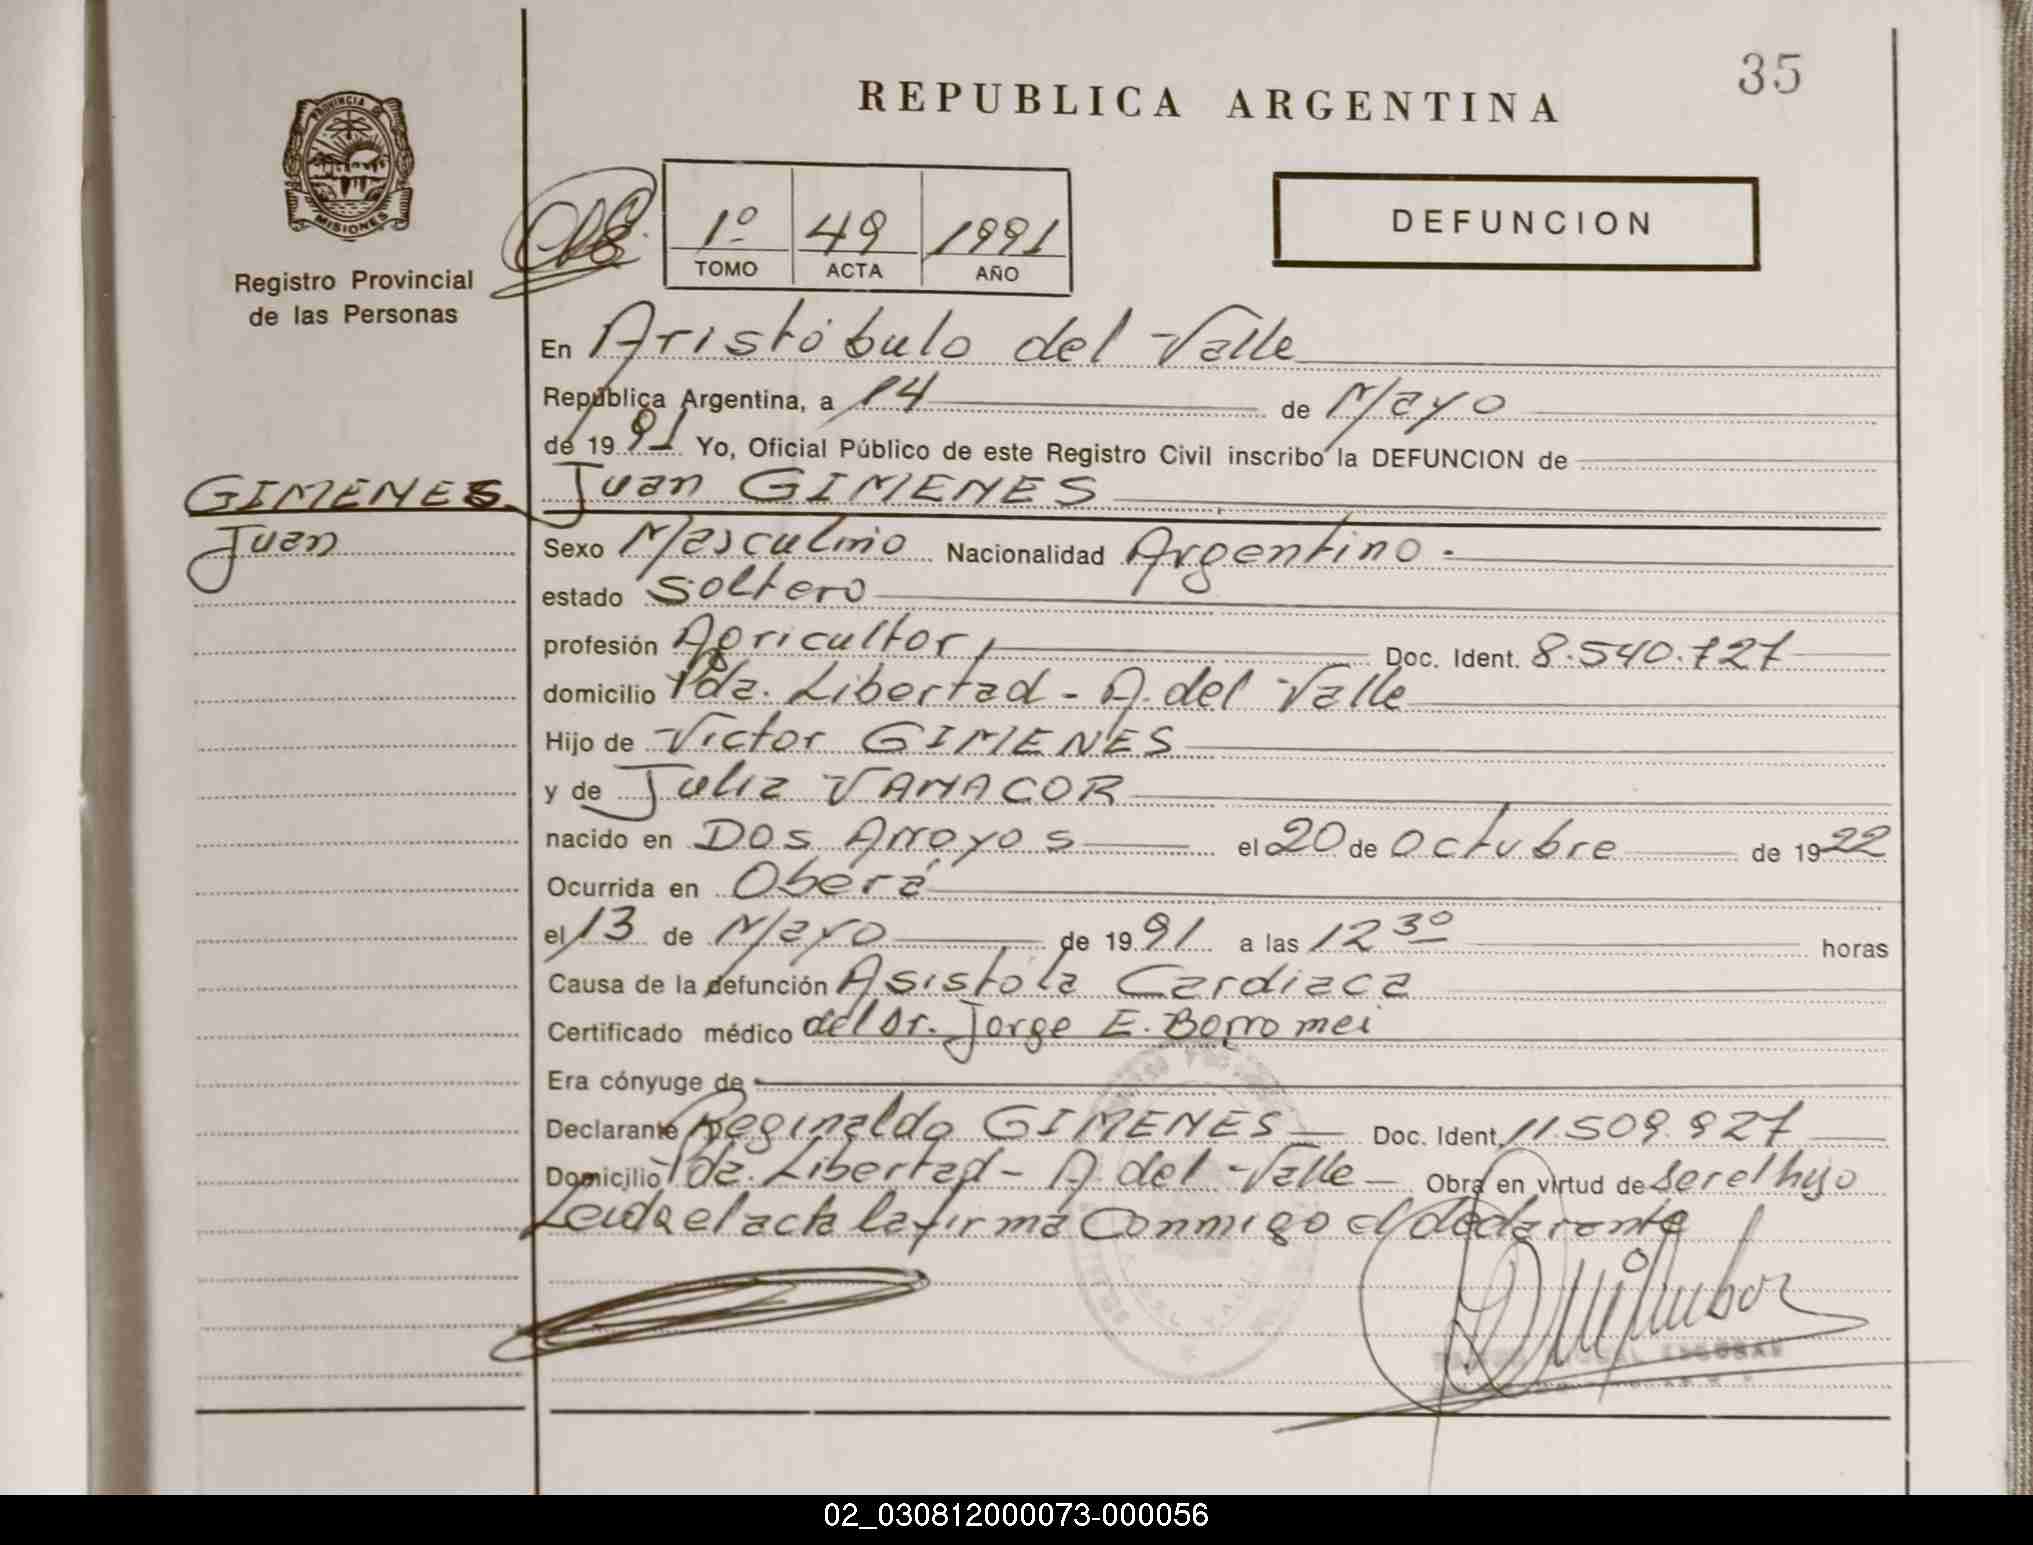 35
REPUBLICA ARGENTINA
PROVINCIA DE
MISIONES
Registro Provincial
de las Personas
1º 49 1991
TOMO ACTA AÑO
DEFUNCION
En Aristóbulo del Valle
República Argentina, a 14 de Mayo
de 1991 Yo, Oficial Público de este Registro Civil inscribo la DEFUNCION de
GIMENES Juan GIMENES
Juan
Sexo Masculino Nacionalidad Argentino.
estado Soltero
profesión Agricultor, Doc. Ident. 8.540.727
domicilio Pda. Libertad - A. del Valle
Hijo de Victor GIMENES
y de Julia VAMACOR
nacido en Dos Arroyos el 20 de Octubre de 1922
Ocurrida en Oberá
el 13 de Mayo de 1991 a las 12 30 horas
Causa de la defunción Asistola Cardiaca
Certificado médico del Dr. Jorge E. Borromei
Era cónyuge de
Declarante Reginaldo GIMENES Doc. Ident. 11.509.927
Domicilio Pda. Libertad - A. del Valle Obra en virtud de ser el hijo
Leida el acta la firma conmigo el declarante
ESCOBAR
02_030812000073-000056